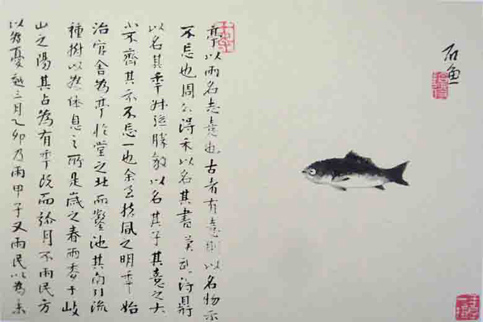 石鱼
亭以雨名志喜也古者有喜則以名物示
不忘也周公得禾以名其書漢武得鼎
以名其年叔孫勝敵以名其子其喜之大
小不齊其示不忘一也余至扶風之明年始
治官舍為亭於堂之北而鑿池其南引流
種樹以為休息之所是歲之春雨麥于岐
山之陽其占為有年既而彌月不雨民方
以為憂越三月乙卯乃雨甲子又雨民以為未